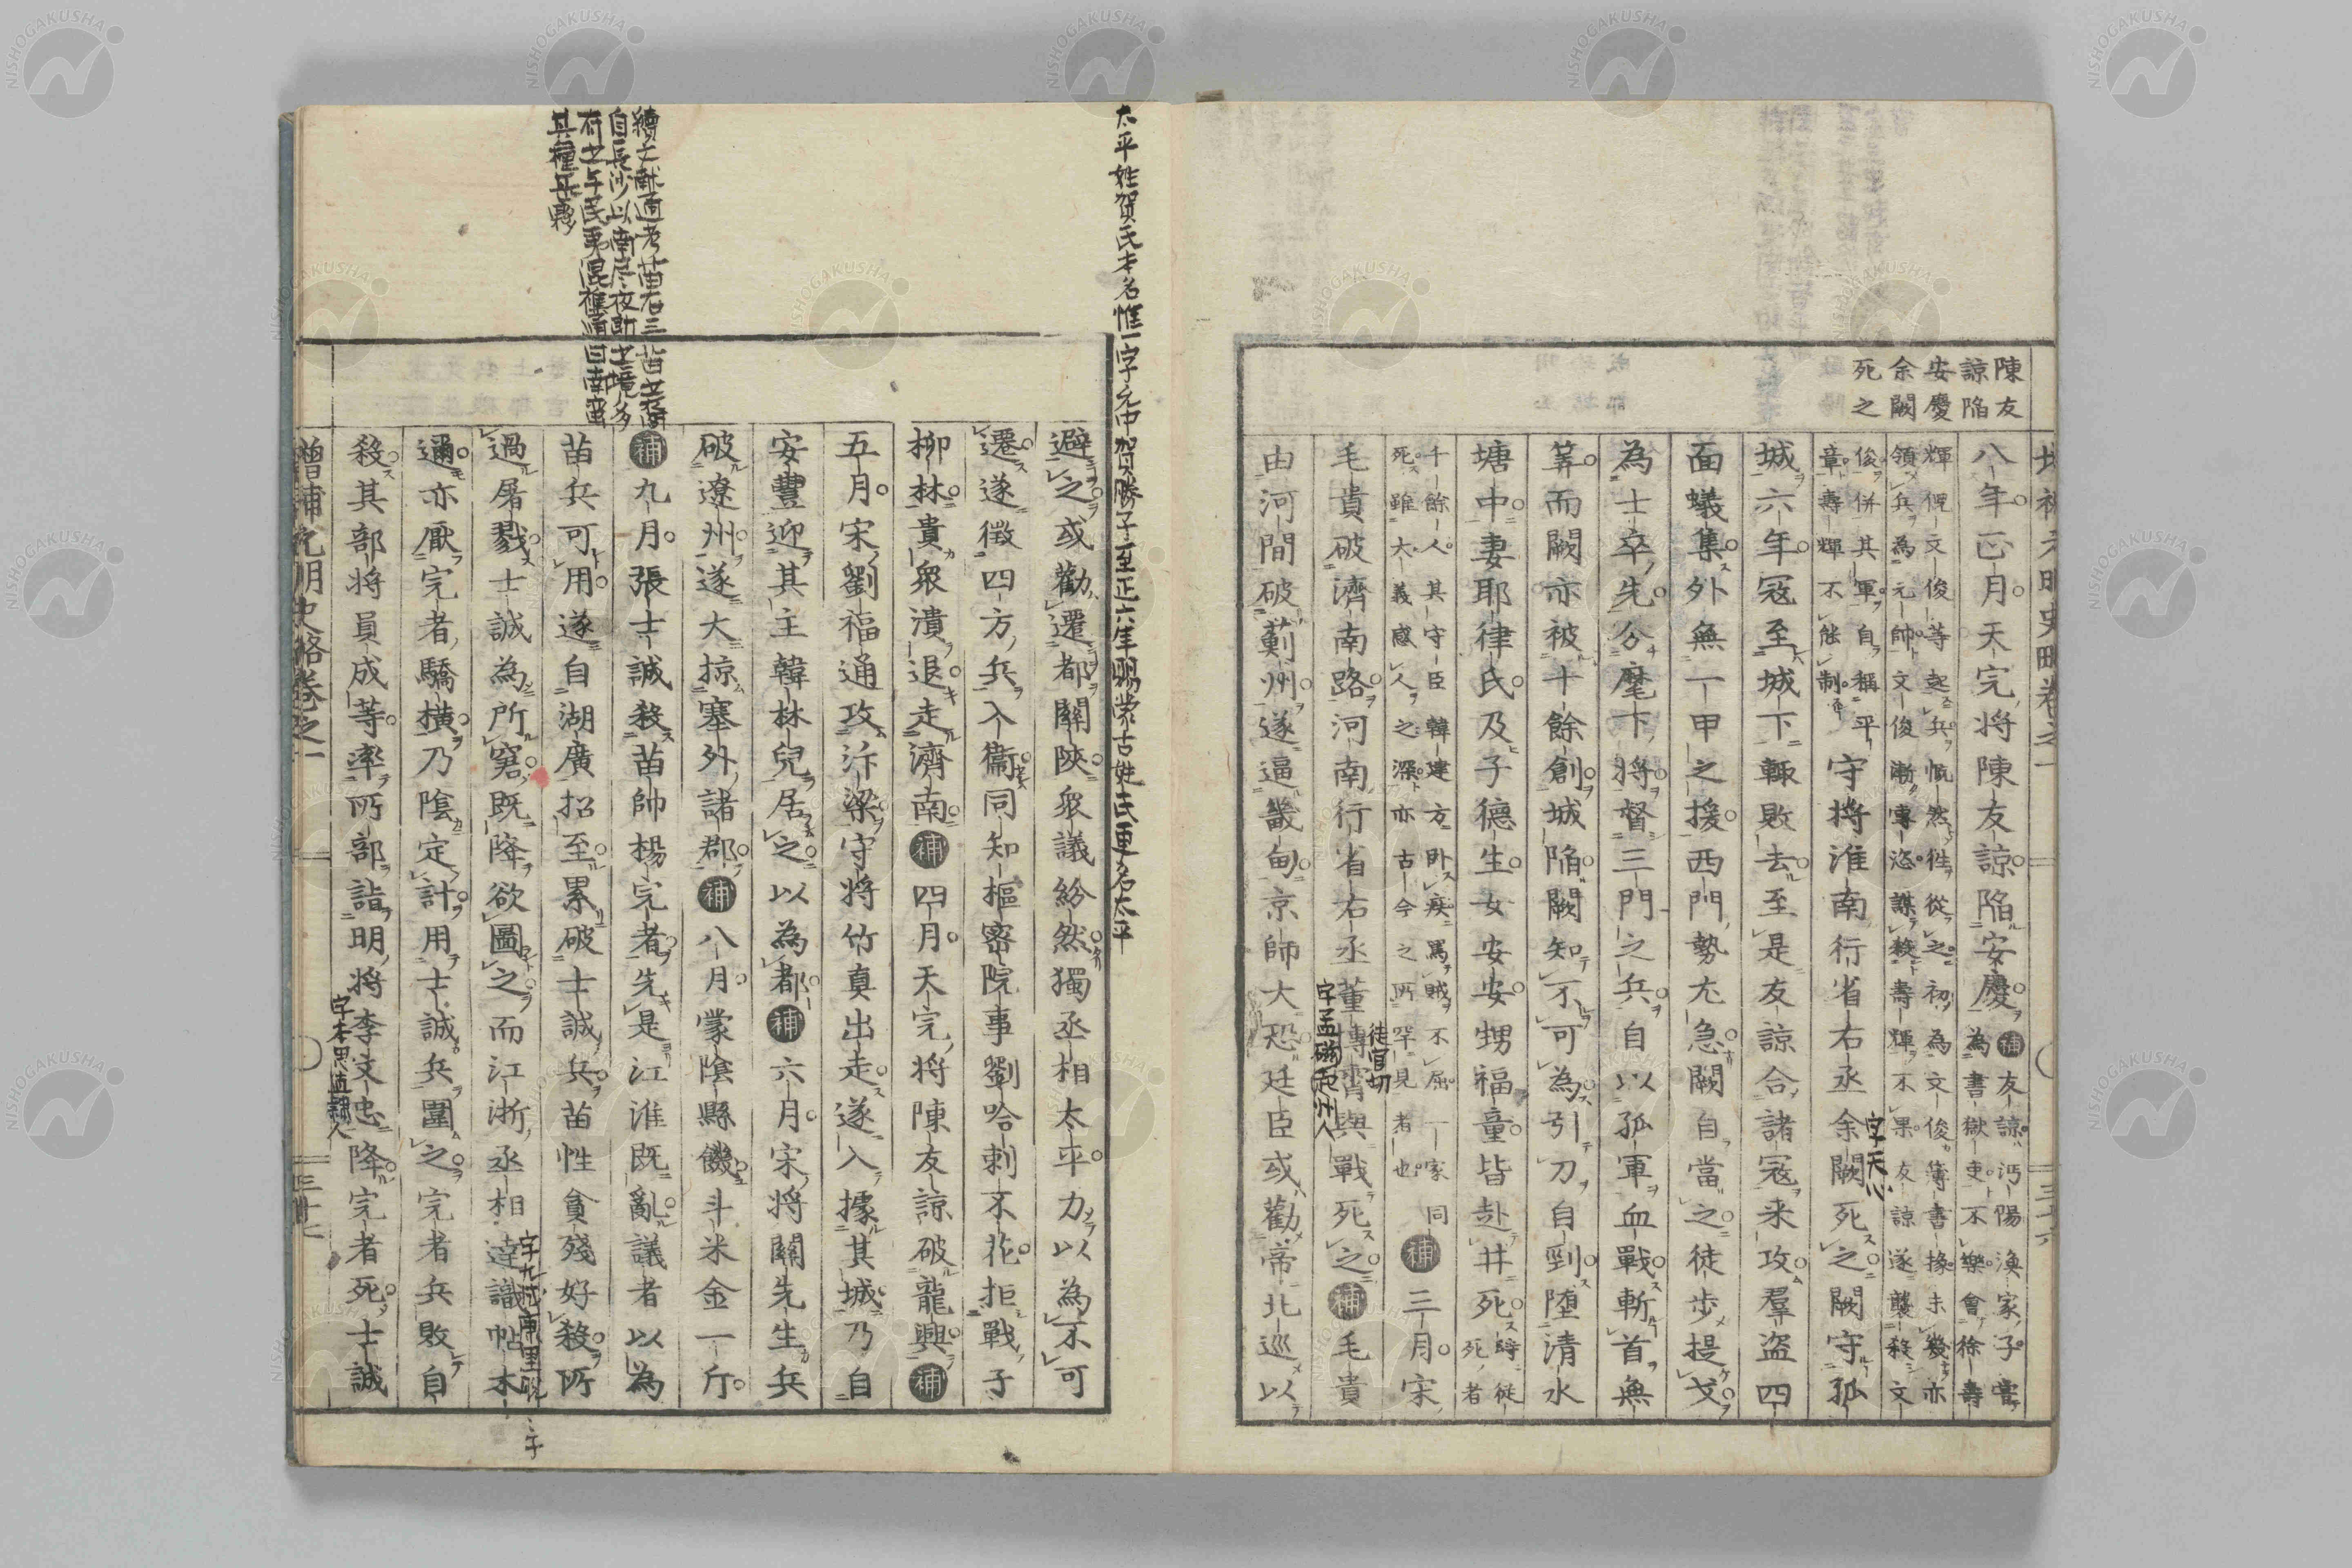 陳友
諒陷
安慶
余闕
死之
八年正月天完將陳友諒陷安慶補友諒沔陽漁家子嘗
為書獄吏不樂會徐壽
輝倪文俊等起兵慨然往從之初為文俊簿書掾未幾亦
領兵為元帥文俊漸專恣謀殺壽輝不果友諒遂襲殺文
俊併其軍自稱平
章壽輝不能制
守將淮南行省右丞余闕死之闕守孤
字天心
城六年寇至城下輒敗去至是友諒合諸寇来攻羣盜四
面蟻集外無一甲之援西門勢尤急闕自當之徒步提戈
為士卒先分麾下將督三門之兵自以孤軍血戰斬首無
筭而闕亦被十餘創城陷闕知不可為引刀自剄墮清水
塘中妻耶律氏及子德生女安安甥福童皆赴井死
時從
死者
千餘人其守臣韓建方卧疾罵賊不屈一家同
死雖大義感人之深亦古今之所罕見者也
補三月宋
毛貴破濟南路河南行省右丞董摶霄與戰死之補毛貴
徒官切
字孟礠磁州人
由河間破薊州遂逼畿甸京師大恐廷臣或勸帝北巡以
太平姓賀氏本名惟一字允中賀勝子至正六年賜蒙古姓氏更名太平
避之或勸遷都關陝衆議紛然獨丞相太平力以為不可
遷遂徵四方兵入衞同知樞密院事劉哈剌不花拒戰于
柳林貴衆潰退走濟南補四月天完將陳友諒破龍興補
五月宋劉福通攻汴梁守將竹真出走遂入據其城乃自
安豐迎其主韓林兒居之以為都補六月宋將關先生兵
破遼州遂大掠塞外諸郡補八月蒙陰縣饑斗米金一斤
續文献通考苗右三苗之裔
自長沙以南尽夜郎之境多
有之与民夷混雜通曰南蛮
其種甚夥
補九月張士誠殺苗帥楊完者先是江淮既亂議者以為
苗兵可用遂自湖廣招至累破士誠兵苗性貪殘好殺所
過屠戮士誠為所窘既降欲圖之而江浙丞相達識帖木
通亦厭完者驕橫乃陰定計用士誠兵圍之完者兵敗自
殺其部將員成等率所部詣明將李文忠降完者死士誠
字本思
增補元明史略卷之一
三十七